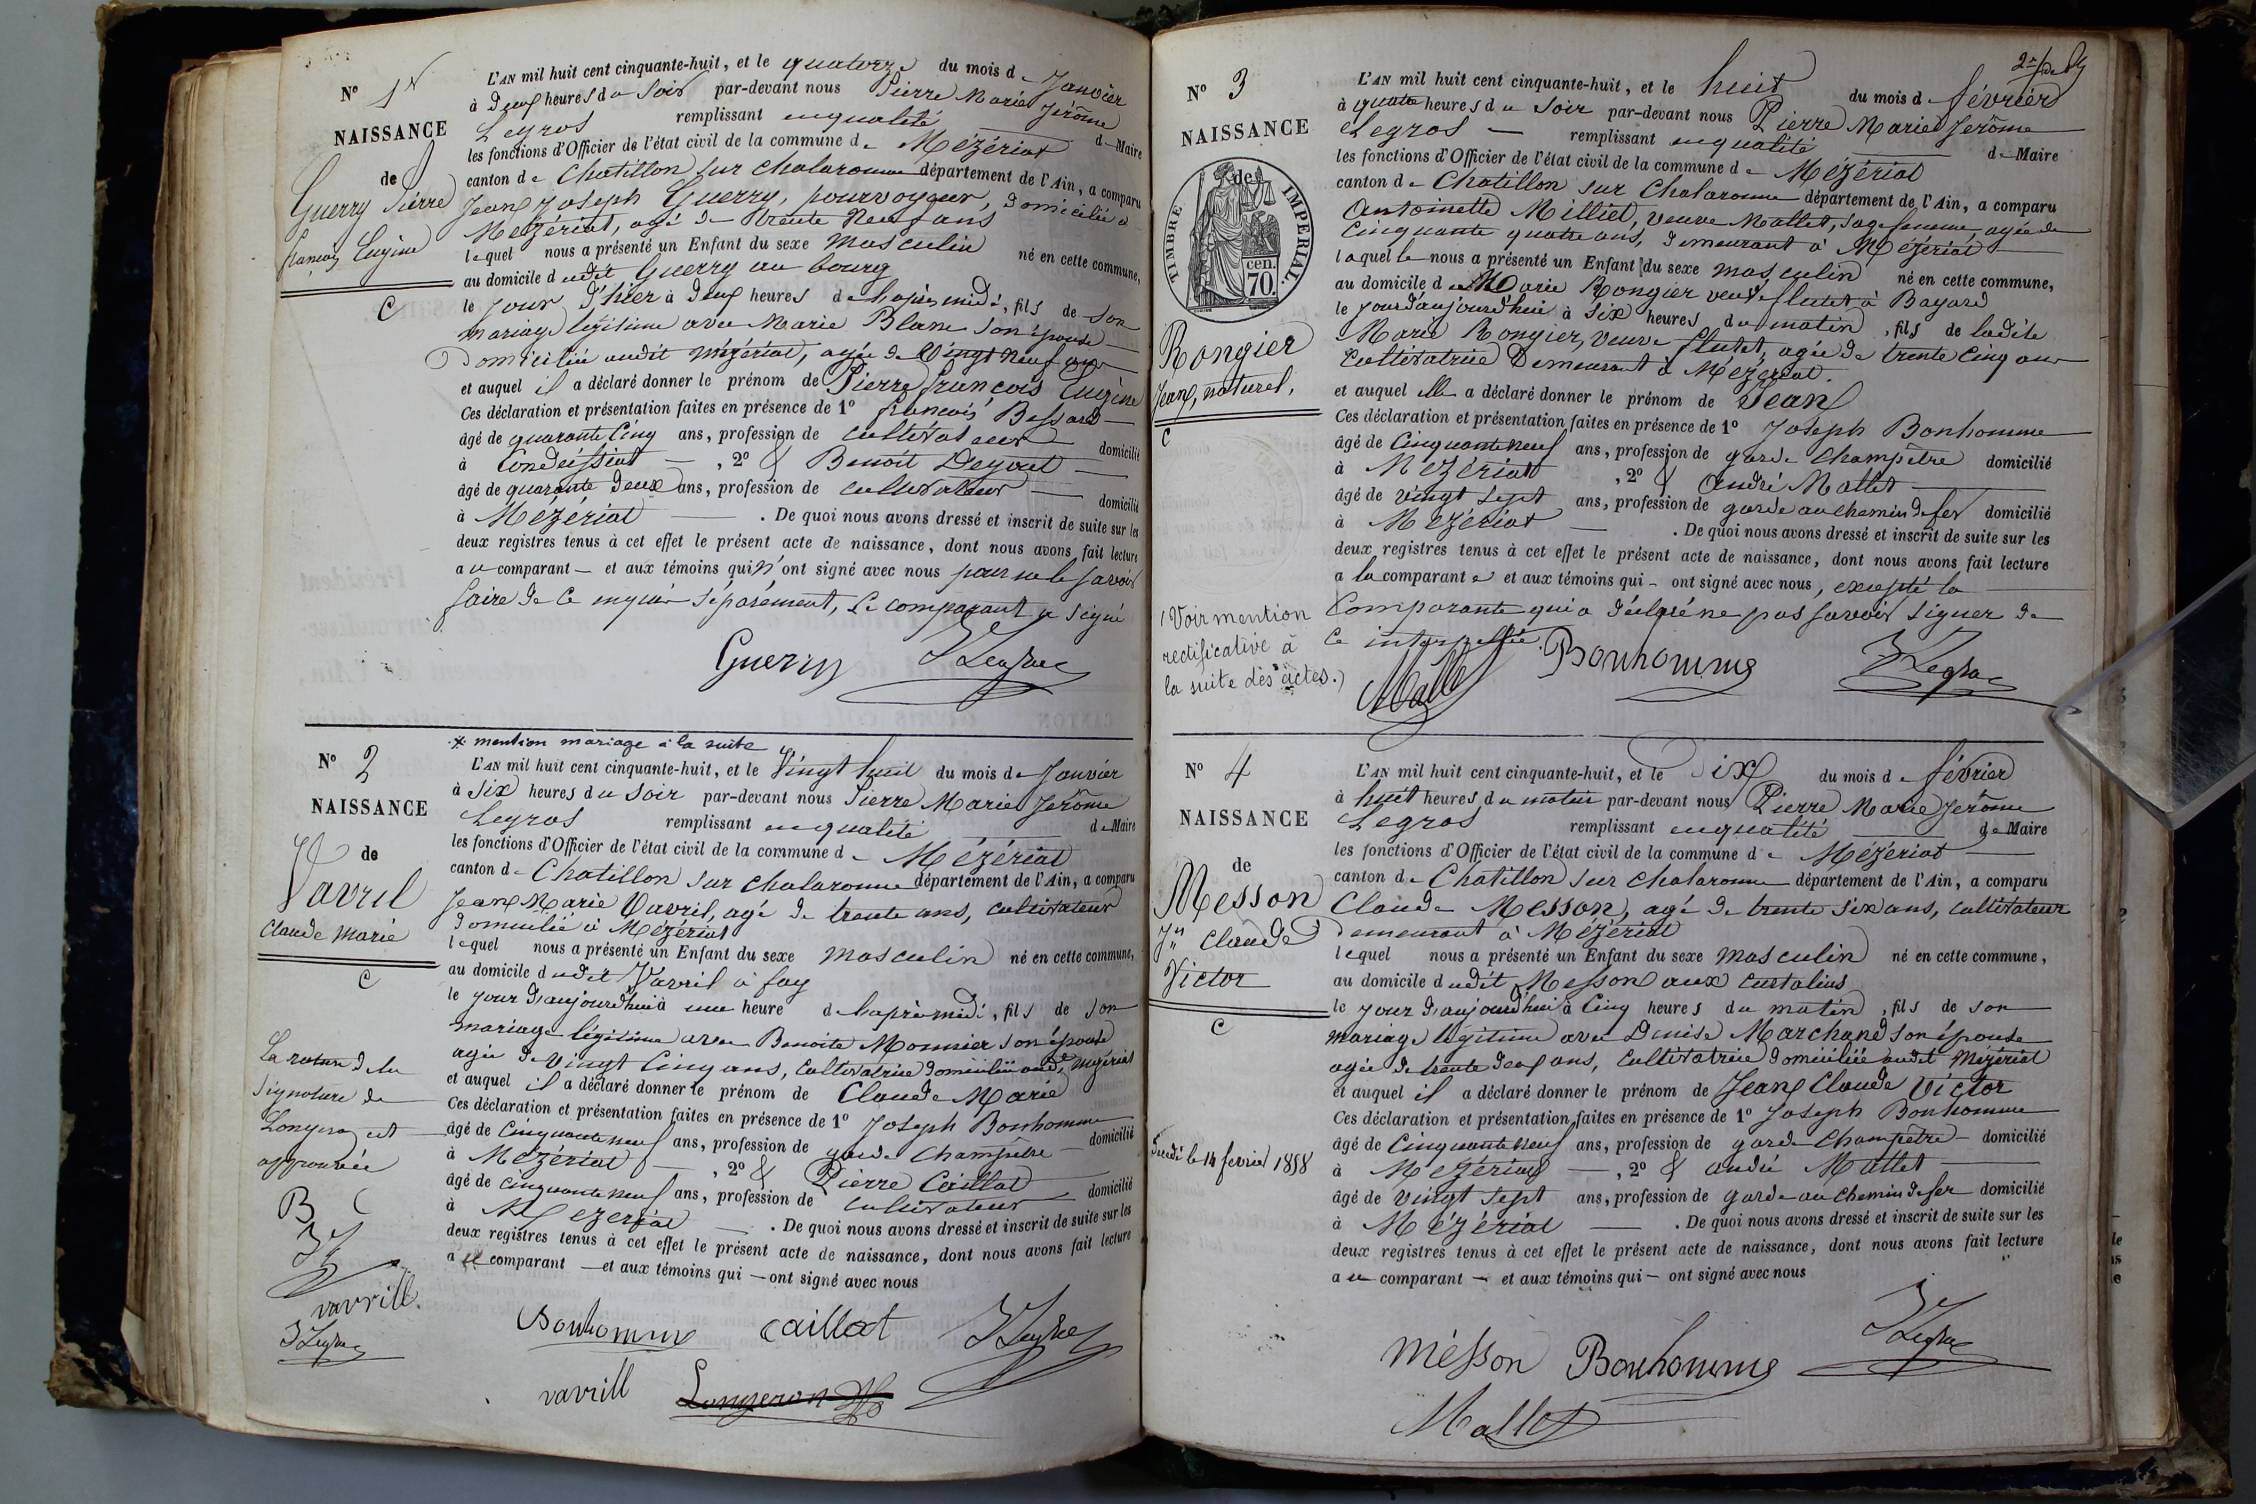 N° 1er
NAISSANCE
de
Guerry Pierre
françois Eugène
C
L'AN mil huit cent cinquante-huit, et le quatorze du mois de Janvier
à deux heures du soir par-devant nous Pierre Marie Jérôme
Legros remplissant en qualité de Maire
les fonctions d'Officier de l'état civil de la commune de Mézériat
canton de Chatillon sur chalaronne département de l'Ain, a comparu
Jean Joseph Guerry, pourvoyeur, domicilié à
Mézériat, agé de trente neuf ans
lequel nous a présenté un Enfant du sexe masculin né en cette commune,
au domicile dudit Guerry au bourg
le jour d'hier à deux heures de l'après midi, fils de son
mariage légitime avec Marie Blanc son épouse
domiciliée audit Mézériat, agée de Vingt neuf ans
et auquel il a déclaré donner le prénom de Pierre françois Eugène
Ces déclaration et présentation faites en présence de 1° françois Bessard
âgé de quarante cinq ans, profession de cultivateur domicilié
à Condeissiat , 2° & Benoit Deyvret
âgé de quarante deux ans, profession de cultivateur domicilié
à Mézériat . De quoi nous avons dressé et inscrit de suite sur les
deux registres tenus à cet effet le présent acte de naissance, dont nous avons fait lecture
au comparant — et aux témoins qui n'ont signé avec nous pour ne le savoir
faire de ce enquis séparément, le comparant a signé
Guerry JLegros
N° 2
NAISSANCE
de
Vavril
Claude Marie
C
La rature de la
signature de
Longeron est
approuvée
B C
JL
vavrill.
JLegros
* mention mariage à la suite
L'AN mil huit cent cinquante-huit, et le Vingt huit du mois de Janvier
à six heures du soir par-devant nous Pierre Marie Jérôme
Legros remplissant en qualité de Maire
les fonctions d'Officier de l'état civil de la commune de Mézériat
canton de Chatillon sur chalaronne département de l'Ain, a comparu
Jean Marie Vavril, agé de trente ans, cultivateur
domicilié à Mézériat
lequel nous a présenté un Enfant du sexe masculin né en cette commune,
au domicile dudit Vavril à fay
le jour d'aujourd'hui à une heure de l'après midi, fils de son
mariage légitime avec Benoite Monnier son épouse
agée de vingt cinq ans, cultivatrice domiciliée audit Mézériat
et auquel il a déclaré donner le prénom de Claude Marie
Ces déclaration et présentation faites en présence de 1° Joseph Bonhomme
âgé de cinquante neuf ans, profession de garde champêtre domicilié
à Mézériat , 2° & Pierre Caillat
âgé de cinquante neuf ans, profession de cultivateur domicilié
à Mézériat . De quoi nous avons dressé et inscrit de suite sur les
deux registres tenus à cet effet le présent acte de naissance, dont nous avons fait lecture
au comparant — et aux témoins qui — ont signé avec nous
Bonhomme caillat JLegros
vavrill Longeron
2e f
N° 3
NAISSANCE
de
TIMBRE IMPERIAL.
70 cen.
Rongier
Jean, naturel,
C
(Voir mention
rectificative à
la suite des actes.)
L'AN mil huit cent cinquante-huit, et le huit du mois de février
à quatre heures du soir par-devant nous Pierre Marie Jerôme
Legros — remplissant en qualité de Maire
les fonctions d'Officier de l'état civil de la commune de Mézériat
canton de Chatillon sur Chalaronne département de l'Ain, a comparu
Antoinette Milliet, veuve Mallet, sage femme, agée de
cinquante quatre ans, demeurant à Mézériat
laquelle nous a présenté un Enfant du sexe masculin né en cette commune,
au domicile de Marie Rongier veuve flutet à Bayard
le jour d'aujourd'hui à six heures du matin, fils de ladite
Marie Rongier, veuve flutet, agée de trente cinq ans
cultivatrice demeurant à Mézériat.
et auquel elle a déclaré donner le prénom de Jean
Ces déclaration et présentation faites en présence de 1° Joseph Bonhomme
âgé de cinquante neuf ans, profession de garde champêtre domicilié
à Mézériat , 2° & André Mallet
âgé de vingt sept ans, profession de garde au chemin de fer domicilié
à Mézériat — . De quoi nous avons dressé et inscrit de suite sur les
deux registres tenus à cet effet le présent acte de naissance, dont nous avons fait lecture
a la comparante et aux témoins qui — ont signé avec nous, excepté la
comparante qui a déclaré ne pas savoir signer de
ce interpellée.
Mallet Bonhomme JLegros
N° 4
NAISSANCE
de
Messon
Jn Claude
Victor
C
Décédé le 14 fevrier 1858
L'AN mil huit cent cinquante-huit, et le Dix du mois de février
à huit heures du matin par-devant nous Pierre Marie Jerôme
Legros remplissant en qualité de Maire
les fonctions d'Officier de l'état civil de la commune de Mézériat
canton de Chatillon sur Chalaronne département de l'Ain, a comparu
Claude Messon, agé de trente six ans, cultivateur
demeurant à Mézériat
lequel nous a présenté un Enfant du sexe masculin né en cette commune,
au domicile dudit Messon aux
le jour d'aujourd'hui à cinq heures du matin, fils de son
mariage légitime avec Denise Marchand son épouse
agée de trente deux ans, cultivatrice domiciliée audit Mézériat
et auquel il a déclaré donner le prénom de Jean Claude Victor
Ces déclaration et présentation faites en présence de 1° Joseph Bonhomme
âgé de cinquante neuf ans, profession de garde champêtre — domicilié
à Mézériat — , 2° & andré Mallet
âgé de vingt sept ans, profession de garde au chemin de fer domicilié
à Mézériat — . De quoi nous avons dressé et inscrit de suite sur les
deux registres tenus à cet effet le présent acte de naissance, dont nous avons fait lecture
au comparant — et aux témoins qui — ont signé avec nous
Mésson Bonhomme JLegros
Mallet